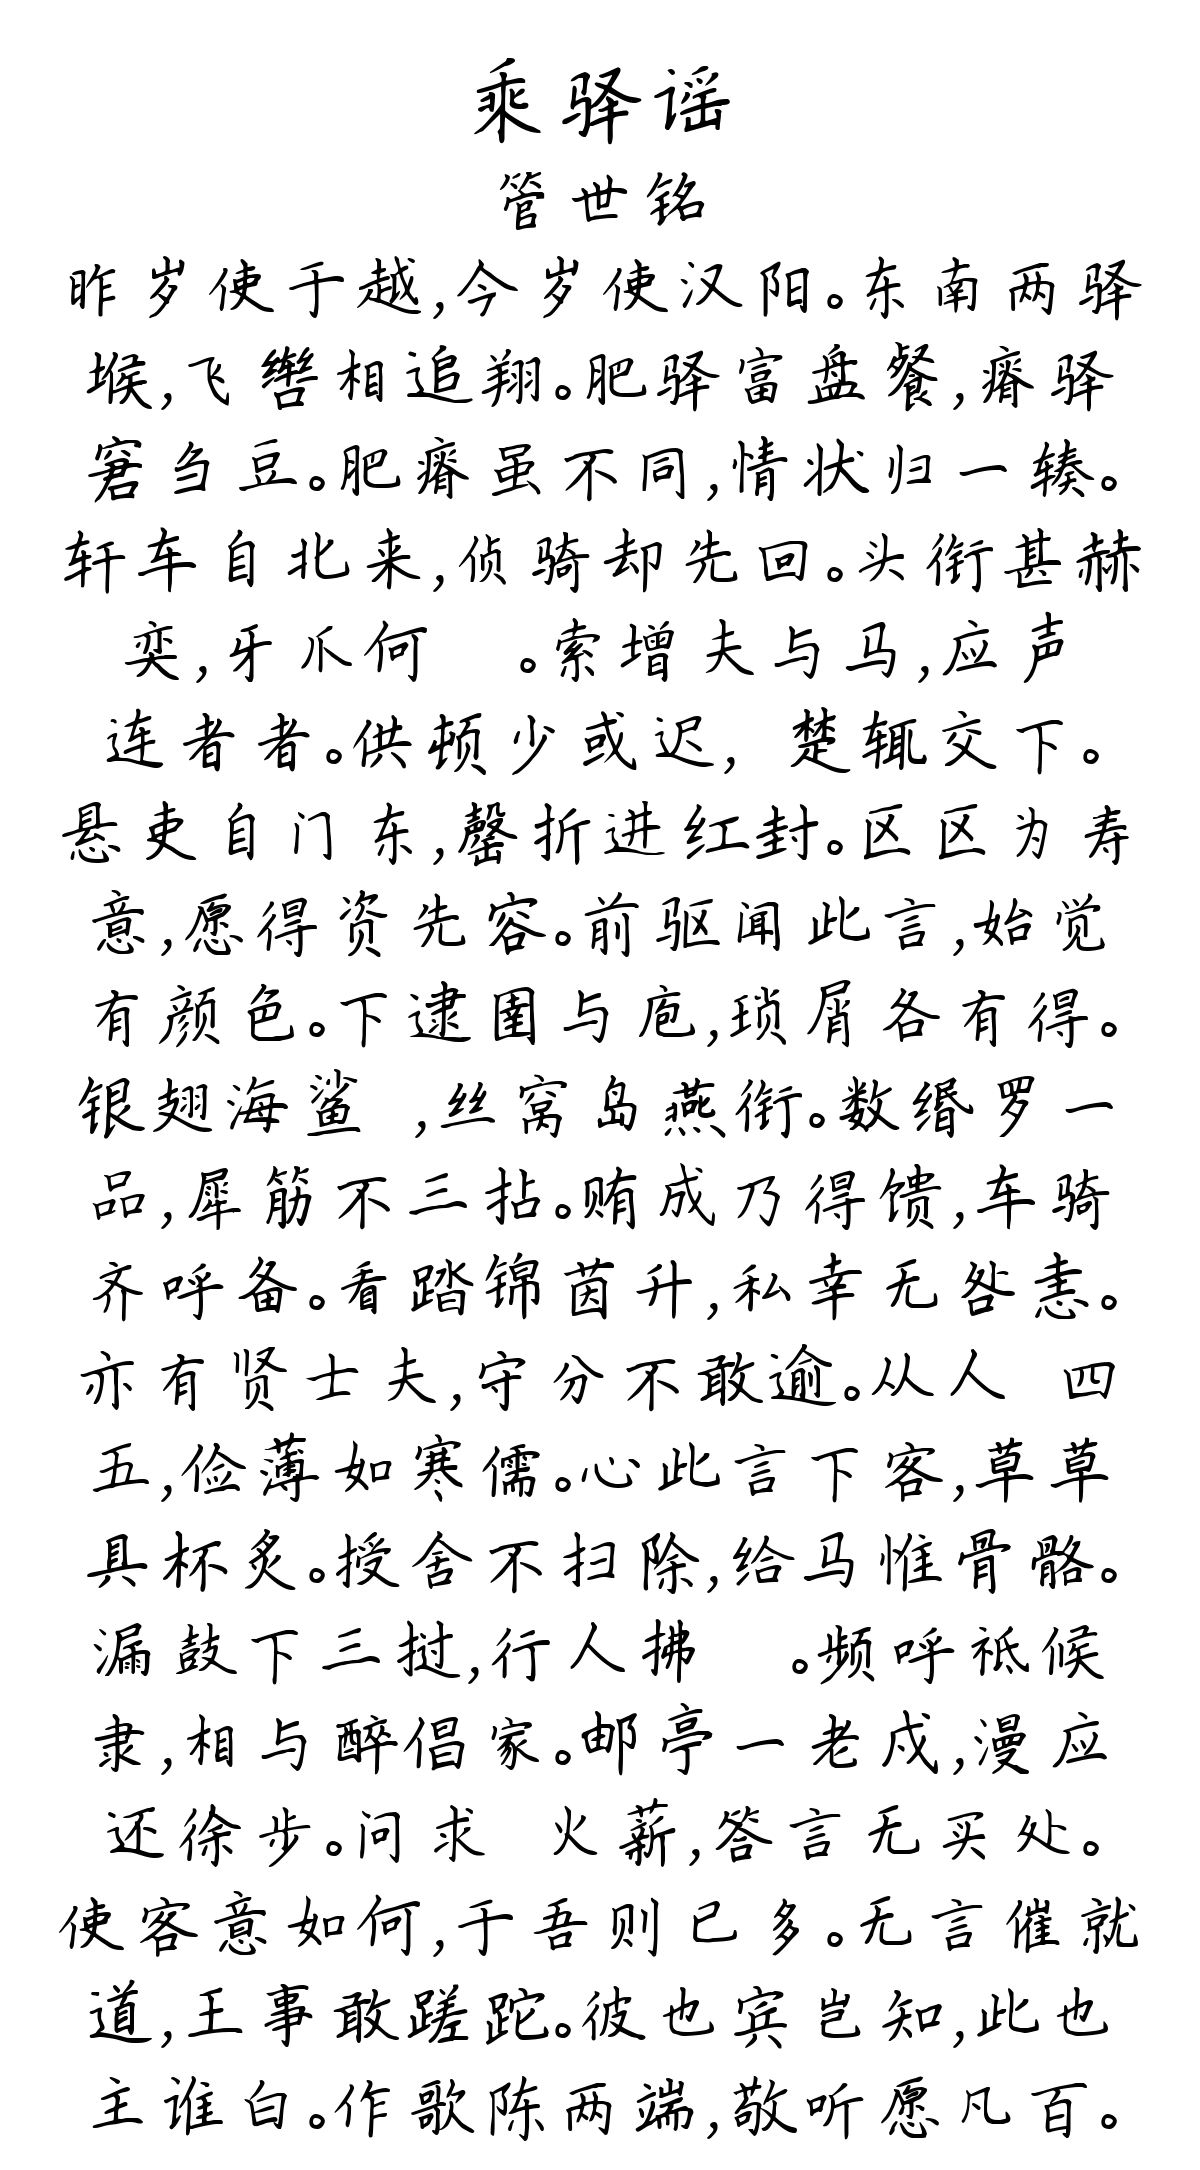 乘驿谣
管世铭
昨岁使于越,今岁使汉阳。东南两驿
堠,飞辔相追翔。肥驿富盘餐,瘠驿
窘刍豆。肥瘠虽不同,情状归一辏。
轩车自北来,侦骑却先回。头衔甚赫
奕,牙爪何 。索增夫与马,应声
连者者。供顿少或迟, 楚辄交下。
悬吏自门东,罄折进红封。区区为寿
意,愿得资先容。前驱闻此言,始觉
有颜色。下逮圉与庖,琐屑各有得。
银翅海鲨 ,丝窝岛燕衔。数缗罗一
品,犀筋不三拈。贿成乃得馈,车骑
齐呼备。看踏锦茵升,私幸无咎恚。
亦有贤士夫,守分不敢逾。从人 四
五,俭薄如寒儒。心此言下客,草草
具杯炙。授舍不扫除,给马惟骨骼。
漏鼓下三挝,行人拂 。频呼祗候
隶,相与醉倡家。邮亭一老戍,漫应
还徐步。问求 火薪,答言无买处。
使客意如何,于吾则已多。无言催就
道,王事敢蹉跎。彼也宾岂知,此也
主谁白。作歌陈两端,敬听愿凡百。